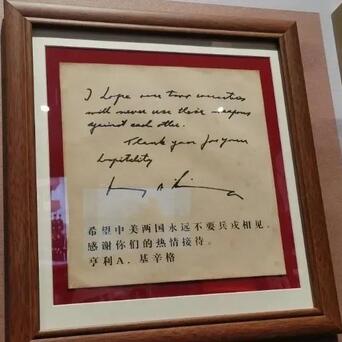 I hope our two countries
will never use their weapons
against each other.
Thank you for your
hospitality
希望中美两国永远不要兵戎相见。
感谢你们的热情接待。
亨利A. 基辛格